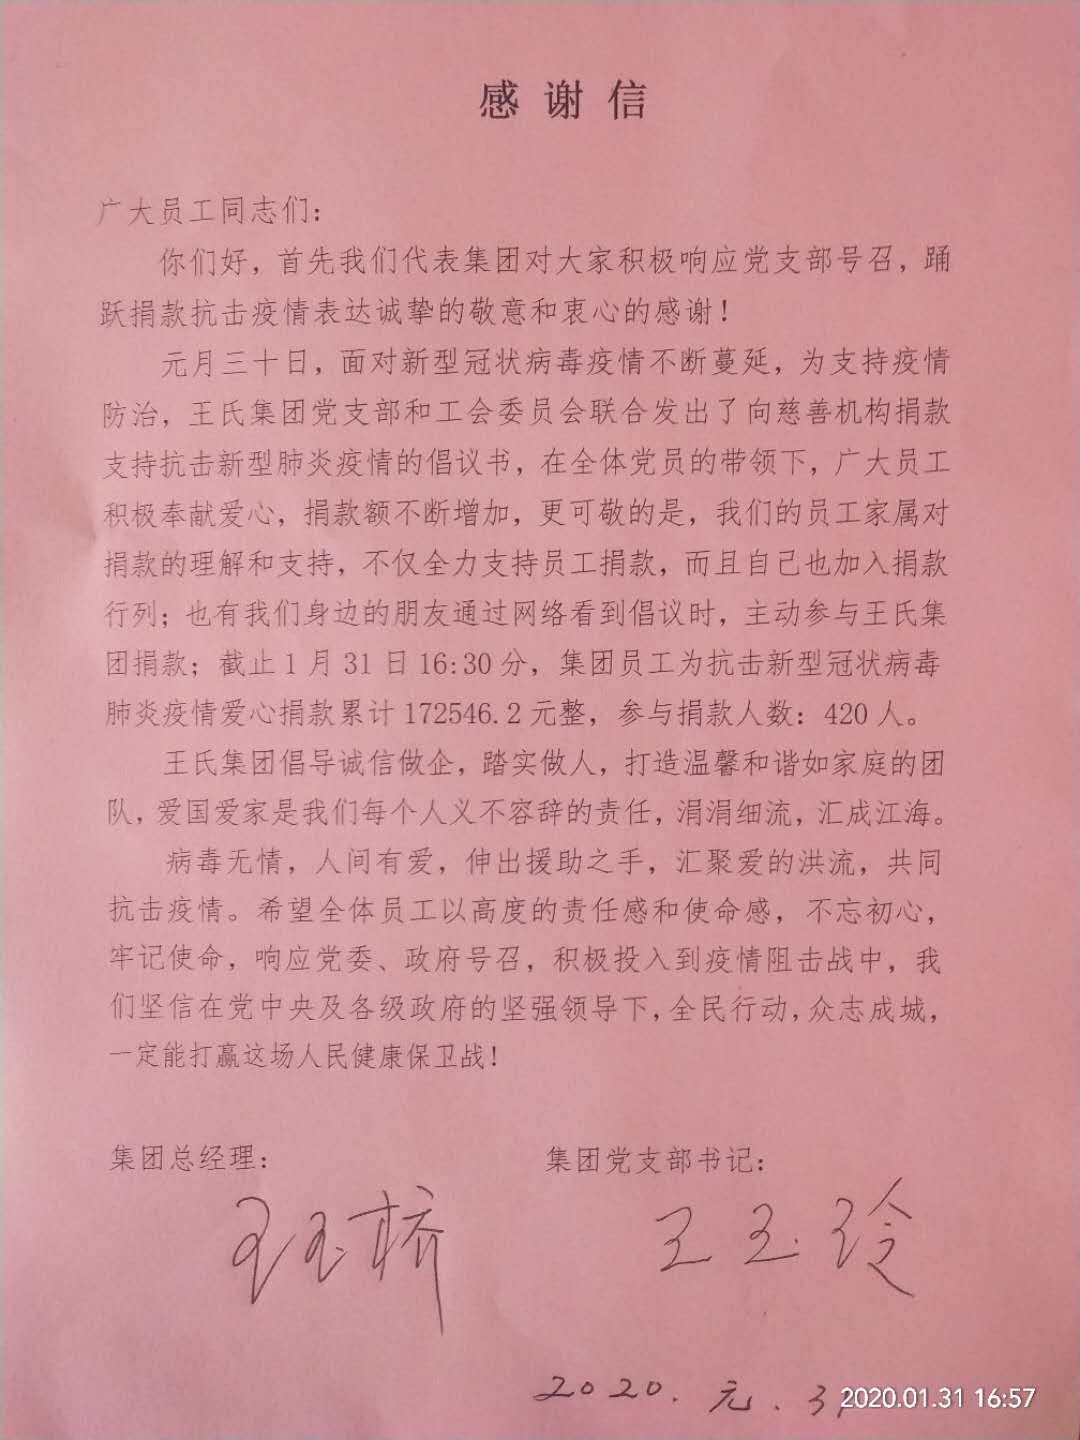 感谢信
广大员工同志们：
你们好，首先我们代表集团对大家积极响应党支部号召，踊
跃捐款抗击疫情表达诚挚的敬意和衷心的感谢！
元月三十日，面对新型冠状病毒疫情不断蔓延，为支持疫情
防治，王氏集团党支部和工会委员会联合发出了向慈善机构捐款
支持抗击新型肺炎疫情的倡议书，在全体党员的带领下，广大员工
积极奉献爱心，捐款额不断增加，更可敬的是，我们的员工家属对
捐款的理解和支持，不仅全力支持员工捐款，而且自己也加入捐款
行列；也有我们身边的朋友通过网络看到倡议时，主动参与王氏集
团捐款；截止1月31日16:30分，集团员工为抗击新型冠状病毒
肺炎疫情爱心捐款累计172546.2元整，参与捐款人数：420人。
王氏集团倡导诚信做企，踏实做人，打造温馨和谐如家庭的团
队，爱国爱家是我们每个人义不容辞的责任，涓涓细流，汇成江海。
病毒无情，人间有爱，伸出援助之手，汇聚爱的洪流，共同
抗击疫情。希望全体员工以高度的责任感和使命感，不忘初心，
牢记使命，响应党委、政府号召，积极投入到疫情阻击战中，我
们坚信在党中央及各级政府的坚强领导下，全民行动，众志成城，
一定能打赢这场人民健康保卫战！
集团总经理： 集团党支部书记：
王玉桥 王玉玲
2020.元.31
2020.01.31 16:57